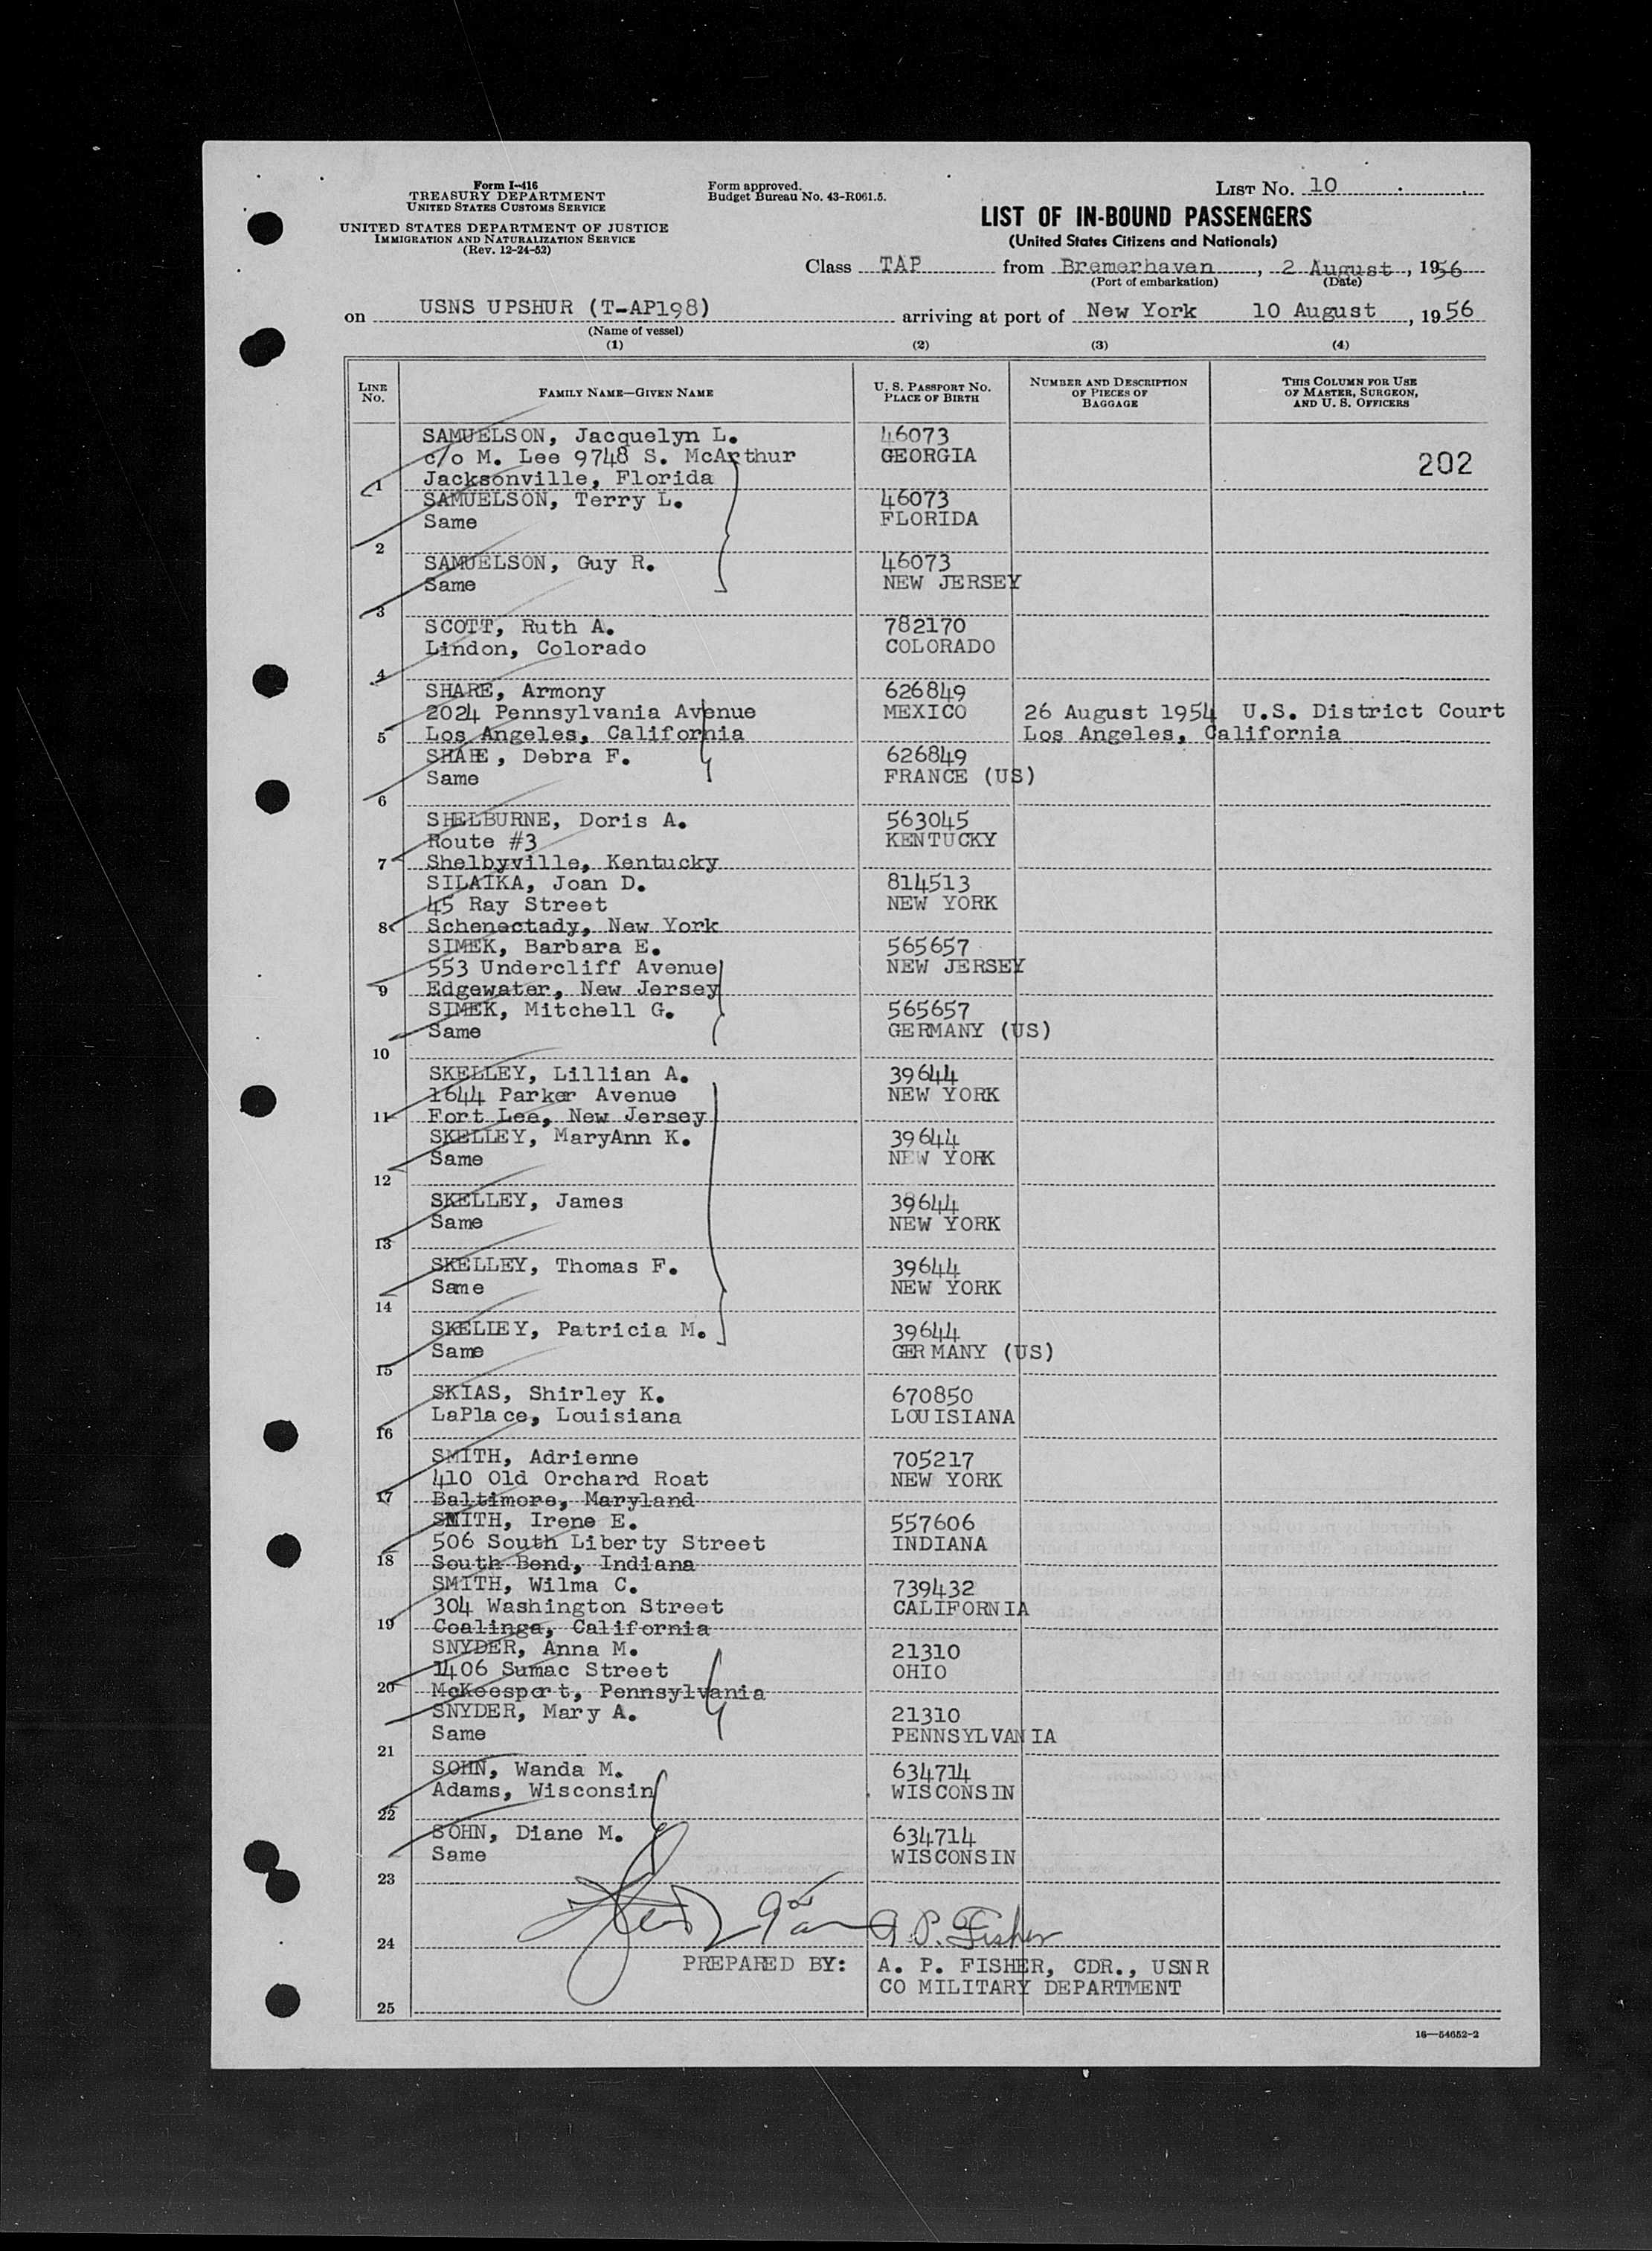 Form I-416
TREASURY DEPARTMENT
UNITED STATES CUSTOMS SERVICE
UNITED STATES DEPARTMENT OF JUSTICE
IMMIGRATION AND NATURALIZATION SERVICE
(Rev. 12-24-52)
Form approved.
Budget Bureau No. 43-R061.5.
LIST NO. 10
LIST OF IN-BOUND PASSENGERS
(United States Citizens and Nationals)
Class TAP from Bremerhaven, 2 August, 1956
(Port of embarkation) (Date)
on USNS UPSHUR (T-AP198) arriving at port of New York 10 August, 1956
(Name of vessel)
(1) (2) (3) (4)
LINE NO. FAMILY NAME—GIVEN NAME U. S. PASSPORT NO. PLACE OF BIRTH NUMBER AND DESCRIPTION OF PIECES OF BAGGAGE THIS COLUMN FOR USE OF MASTER, SURGEON, AND U. S. OFFICERS
SAMUELSON, Jacquelyn L. 46073
c/o M. Lee 9748 S. McArthur GEORGIA 202
1 Jacksonville, Florida
SAMUELSON, Terry L. 46073
Same FLORIDA
2
SAMUELSON, Guy R. 46073
Same NEW JERSEY
3
SCOTT, Ruth A. 782170
Lindon, Colorado COLORADO
4
SHARE, Armony 626849
2024 Pennsylvania Avenue MEXICO 26 August 1954 U.S. District Court
5 Los Angeles, California Los Angeles, California
SHARE, Debra F. 626849
Same FRANCE (US)
6
SHELBURNE, Doris A. 563045
Route #3 KENTUCKY
7 Shelbyville, Kentucky
SILAIKA, Joan D. 814513
45 Ray Street NEW YORK
8 Schenectady, New York
SIMEK, Barbara E. 565657
553 Undercliff Avenue NEW JERSEY
9 Edgewater, New Jersey
SIMEK, Mitchell G. 565657
Same GERMANY (US)
10
SKELLEY, Lillian A. 39644
1644 Parker Avenue NEW YORK
11 Fort Lee, New Jersey
SKELLEY, MaryAnn K. 39644
Same NEW YORK
12
SKELLEY, James 39644
Same NEW YORK
13
SKELLEY, Thomas F. 39644
Same NEW YORK
14
SKELLEY, Patricia M. 39644
Same GERMANY (US)
15
SKIAS, Shirley K. 670850
LaPlace, Louisiana LOUISIANA
16
SMITH, Adrienne 705217
410 Old Orchard Roat NEW YORK
17 Baltimore, Maryland
SMITH, Irene E. 557606
506 South Liberty Street INDIANA
18 South Bend, Indiana
SMITH, Wilma C. 739432
304 Washington Street CALIFORNIA
19 Coalinga, California
SNYDER, Anna M. 21310
1406 Sumac Street OHIO
20 McKeesport, Pennsylvania
SNYDER, Mary A. 21310
Same PENNSYLVANIA
21
SOHN, Wanda M. 634714
Adams, Wisconsin WISCONSIN
22
SOHN, Diane M. 634714
Same WISCONSIN
23
A. P. Fisher
24
PREPARED BY: A. P. FISHER, CDR., USNR
CO MILITARY DEPARTMENT
25
16—54652-2